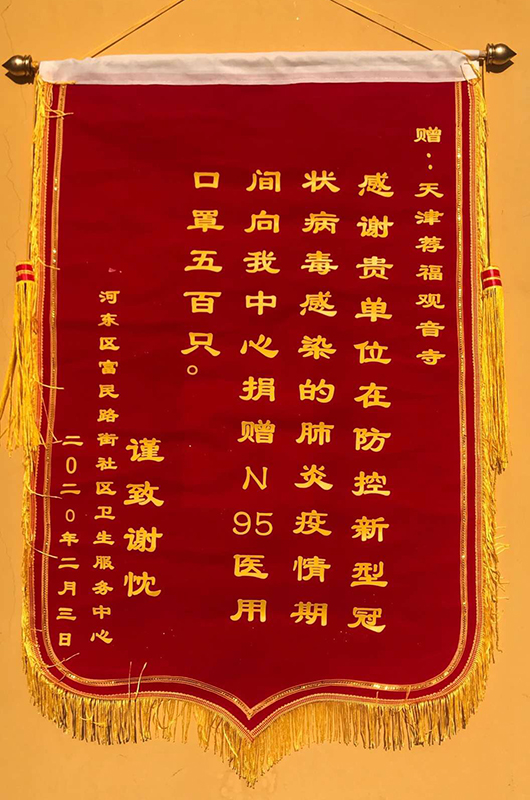 赠：天津荐福观音寺
感谢贵单位在防控新型冠
状病毒感染的肺炎疫情期
间向我中心捐赠N95医用
口罩五百只。
谨致谢忱
河东区富民路街社区卫生服务中心
二〇二〇年二月三日